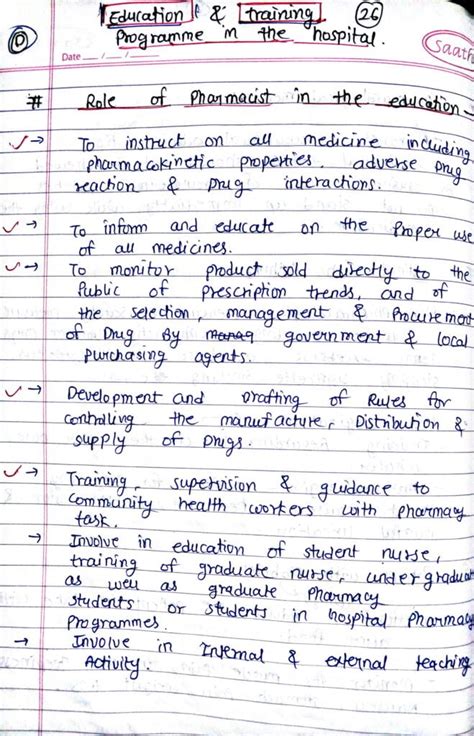 Education & training 26
Programme in the hospital.
Saath
Date
# Role of Pharmacist in the education -
→ To instruct on all medicine including
pharmacokinetic properties. adverse Drug
reaction & Drug interactions.
→ To inform and educate on the Proper use
of all medicines.
→ To monitor product sold directly to the
Public of prescription trends, and of
the selection, management & Procurement
of Drug By Manag government & local
Purchasing agents.
→ Development and Drafting of Rules for
controlling the manufacture, Distribution &
supply of Drugs.
→ Training, supervision & guidance to
community health workers with pharmacy
task.
→ Involve in education of student nurse,
training of graduate nurse, undergraduat
as well as graduate Pharmacy
students or students in hospital Pharmacy
Programmes.
→ Involve in Internal & external teaching
Activity.